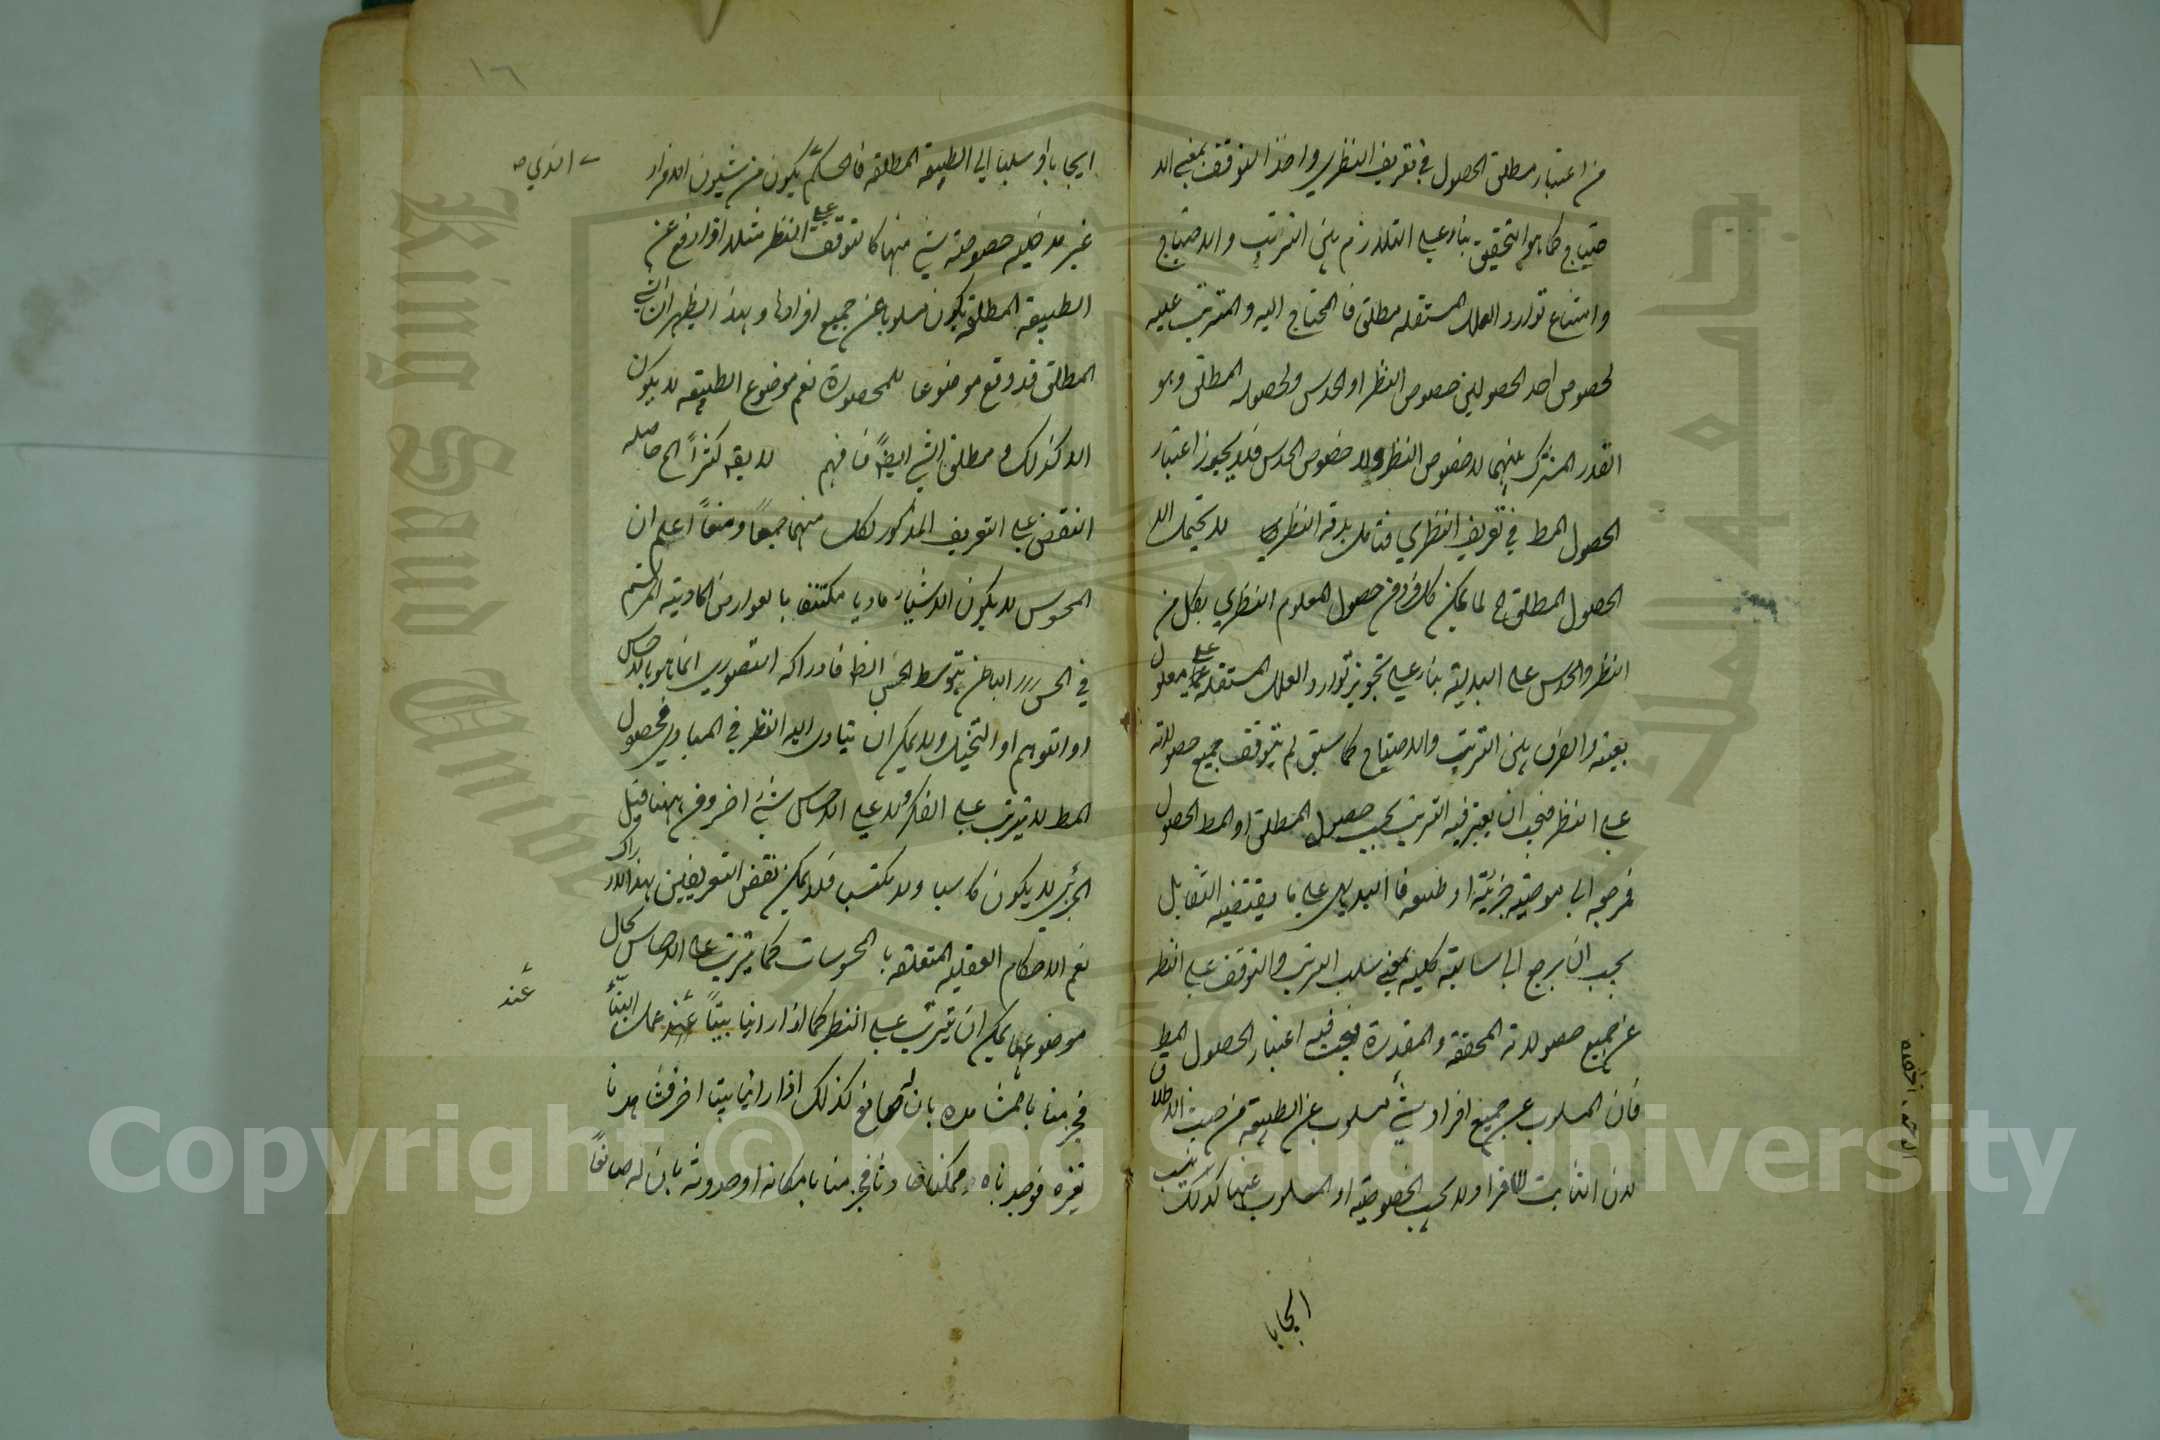 من اعتبار مطلق الحصول في تعريف النظري واخذ التوقف بمعنى الا
حتياج كما هو التحقيق بناء على التلازم بين الترتب والاحتياج
وامتناع توارد العلل المستقله مطلق فالمحتاج اليه والمترتب عليه
لخصوص احد الحصولين خصوص النظر او الحدس ولحصوله المطلق وهو
القدر المشترك بينهما لا خصوص النظر ولا خصوص الحدس فلا يجوز اعتبار
الحصول المط في تعريف النظري فتامل بدقة النظر لا يحتمل الا
الحصول المطلق لما يمكن حصول المعلوم النظري بكل من
النظر والحدس على البدلية بناء على تجويز توارد العلل المستقلة على معلول
بعينه والفرق بين الترتب والاحتياج كما سبق لم يتوقف جميع حصولاته
على النظر فيجب ان يعتبر فيه الترتب بحسب حصول المطلق او المط الحصول
فمرجعه الى موجبة جزئية او طبيعه فالبديهي على ما يقتضيه التقابل
يجب ان يرجع الى سالبة كلية بمعنى سلب الترتب والتوقف على النظر
عن جميع حصولاته المحققة والمقدرة فيجب فيه اعتبار الحصول المطلق
فان المسلوب عن جميع افراد شئ مسلوب عن الطبيعة من حيث الاطلاق
لان الثابت للافراد ولا بحسب الخصوصية او المسلوب عنها كذلك ينسب
ايجابا
١٦
ايجابا او سلبا الى الطبيعة المطلقة فالحكم يكون من شيون الافراد
الذي صح
غير مدخلية خصوصية شئ منها كالتوقف على النظر مثلا اذا رفع عن
الطبيعة المطلقة يكون مسلوبا عن جميع افرادها وبهذا يظهر ان الشئ
المطلق قد وقع موضوعا للمحصورة نعم موضوع الطبيعة لا يكون
الا كذلك ومطلق الشئ ايضا فافهم لا يقه كثرا الخ حاصله
النقض على التعريف المذكور لكل منهما جمعا ومنعا اعلم ان
المحسوس لا يكون الا شيئا ماديا مكتنفا بالعوارض المادية المرتسم
في الحس الباطن بتوسط الحس الظ فادراكه التصوري انما هو بالاحساس
او التوهم او التخيل ولا يمكن ان يتادى اليه النظر في المبادي فحصول
المط لا يترتب على الفكر ولا على الاحساس بشئ اخر ومن ههنا قيل
الجزئي لا يكون كاسبا ولا مكتسبا فلا يمكن نقض التعريفين بهذا الادراك
نعم الاحكام العقلية المتعلقة بالمحسوسات كما يترتب على الاحساس بحال
موضوعها يمكن ان يترتب على النظر كما اذا راينا بيتا عند عمل البناء
عند
فجزمنا بالمشاهده بان له صانع كذلك اذا راينا بيتا اخر فشاهدنا
تغيره فوجدناه ممكنا حادثا فجزمنا بامكانه او حدوثه بان له صانعا
Copyright © King Saud University
King Saud University
جامعة الملك سعود